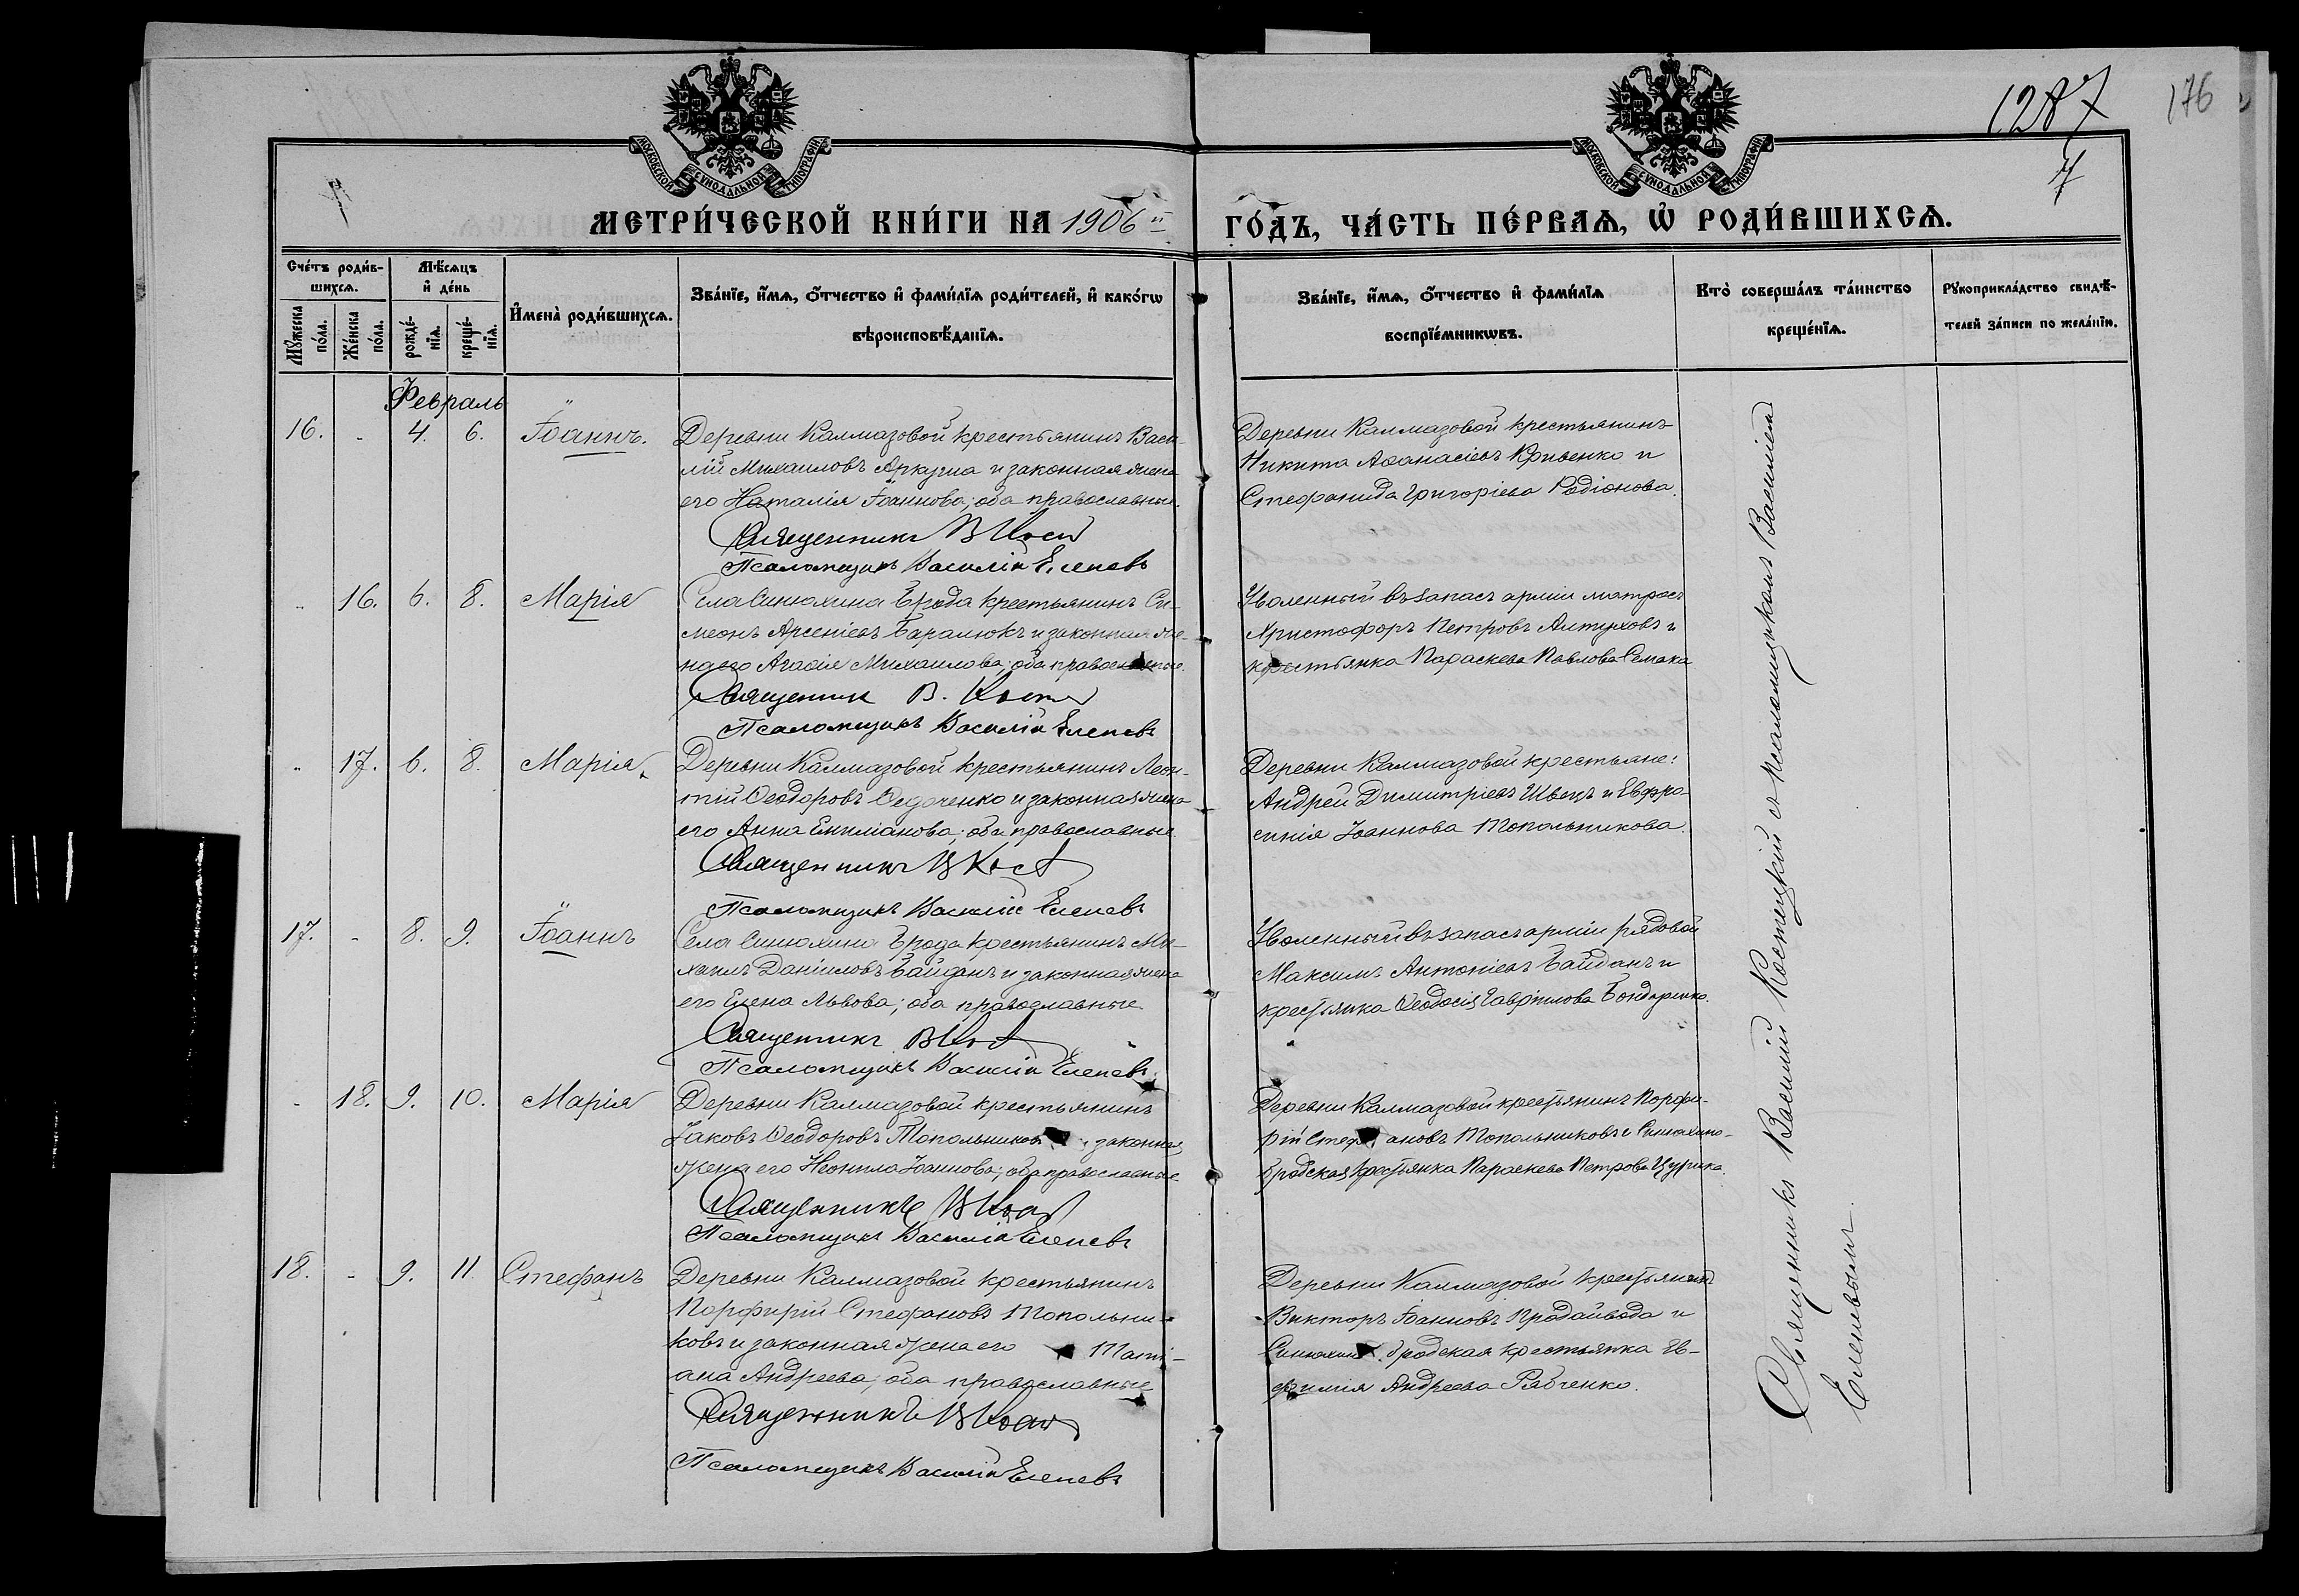 1287
176
7
МОСКОВСКОЙ СѴНОДАЛЬНОЙ ТИПОГРАФІИ
МОСКОВСКОЙ СѴНОДАЛЬНОЙ ТИПОГРАФІИ
МЕТРИ́ЧЕСКОЙ КНИ́ГИ НА 1906й
ГО́ДЪ, ЧА́СТЬ ПЕ́РВАѦ, Ѡ҆ РОДИ́ВШИХСѦ.
Сче́тъ роди́в-
шихсѧ.
Мѣ́сѧцъ
и҆ де́нь
Мꙋ́жеска по́ла.
Же́нска по́ла.
рожде́-нїѧ.
креще́-нїѧ.
И҆мена̀ роди́вшихсѧ.
Зва́нїе, и҆́мѧ, ѻ҆́тчество и҆ фами́лїѧ роди́телей, и҆ како́гѡ
вѣроисповѣ́данїѧ.
Зва́нїе, и҆́мѧ, ѻ҆́тчество и҆ фами́лїѧ
воспрїе́мникѡвъ.
Кто̀ соверша́лъ та́инство
креще́нїѧ.
Рꙋкоприкла́дство свидѣ́-
телей за́писи по жела́нїю.
Февраль
16. - 4. 6. Іоаннъ.
Деревни Калмазовой крестьянинъ Васи-
лій Михаиловъ Аркуша и законная жена
его Наталія Іоаннова; оба православные.
Священникъ В Кост
Псаломщикъ Василій Еленевъ
Деревни Калмазовой крестьянинъ
Никита Аѳанасіевъ Кривенко и
Стефанида Григоріева Родіонова.
" 16. 6. 8. Марія
Села Синюхина Брода крестьянинъ Си-
меонъ Арсеніевъ Баралюкъ и законная же-
на его Агаѳія Михаилова; оба православные.
Священник В. Кост
Псаломщикъ Василій Еленевъ
Уволенный въ запасъ арміи матросъ
Христофоръ Петровъ Алтуховъ и
крестьянка Параскева Павлова Семака
" 17. 6. 8. Марія.
Деревни Калмазовой крестьянинъ Леон-
тій Ѳеодоровъ Ѳедоченко и законная жена
его Анна Емиліанова; оба православные.
Священникъ В Кост
Псаломщикъ Василій Еленевъ
Деревни Калмазовой крестьяне:
Андрей Димитріевъ Швецъ и Евфро-
синія Іоаннова Топольникова.
17. - 8. 9. Іоаннъ
Села Синюхина Брода крестьянинъ Ми-
хаилъ Даніиловъ Байданъ и законная жена
его Елена Львова; оба православные.
Священникъ В Кост
Псаломщикъ Василій Еленевъ.
Уволенный въ запасъ арміи рядовой
Максимъ Антоніевъ Байданъ и
крестьянка Ѳеодосія Гавріилова Бондаренко.
- 18. 9. 10. Марія
Деревни Калмазовой крестьянинъ
Іаковъ Ѳеодоровъ Топольниковъ и законная
жена его Неонила Іоаннова; оба православные
Священникъ В Кост
Псаломщикъ Василій Еленевъ
Деревни Калмазовой крестьянинъ Порфи-
рій Стефановъ Топольниковъ и Синюхино-
бродская крестьянка Параскева Петрова Цурика.
18. - 9. 11. Стефанъ
Деревни Калмазовой крестьянинъ
Порфирій Стефановъ Топольни-
ковъ и законная жена его Тати-
ана Андреева; оба православные
Священникъ В Кост
Псаломщикъ Василій Еленевъ
Деревни Калмазовой крестьянинъ
Викторъ Іоанновъ Продайвода и
Синюхино-бродская крестьянка Ев-
фимія Андреева Рябченко.
Священникъ Василій Костецкій съ псаломщикомъ Василіемъ
Еленевымъ.